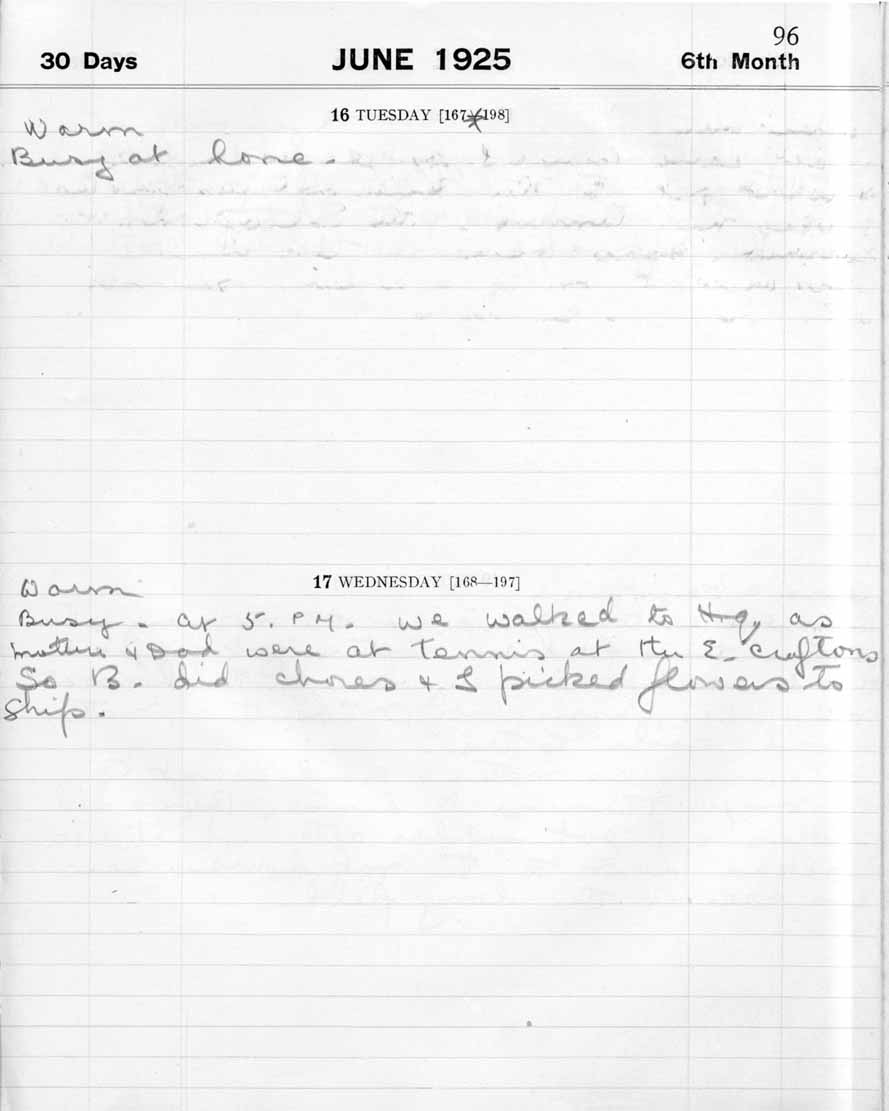 96
30 Days JUNE 1925 6th Month
16 TUESDAY [167-198]
Warm
Busy at home.
17 WEDNESDAY [168—197]
Warm
Busy. at 5. P M. we walked to Hq, as
mother & Dad were at tennis at the E. Croftons
So B. did chores & I picked flowers to
Ship.